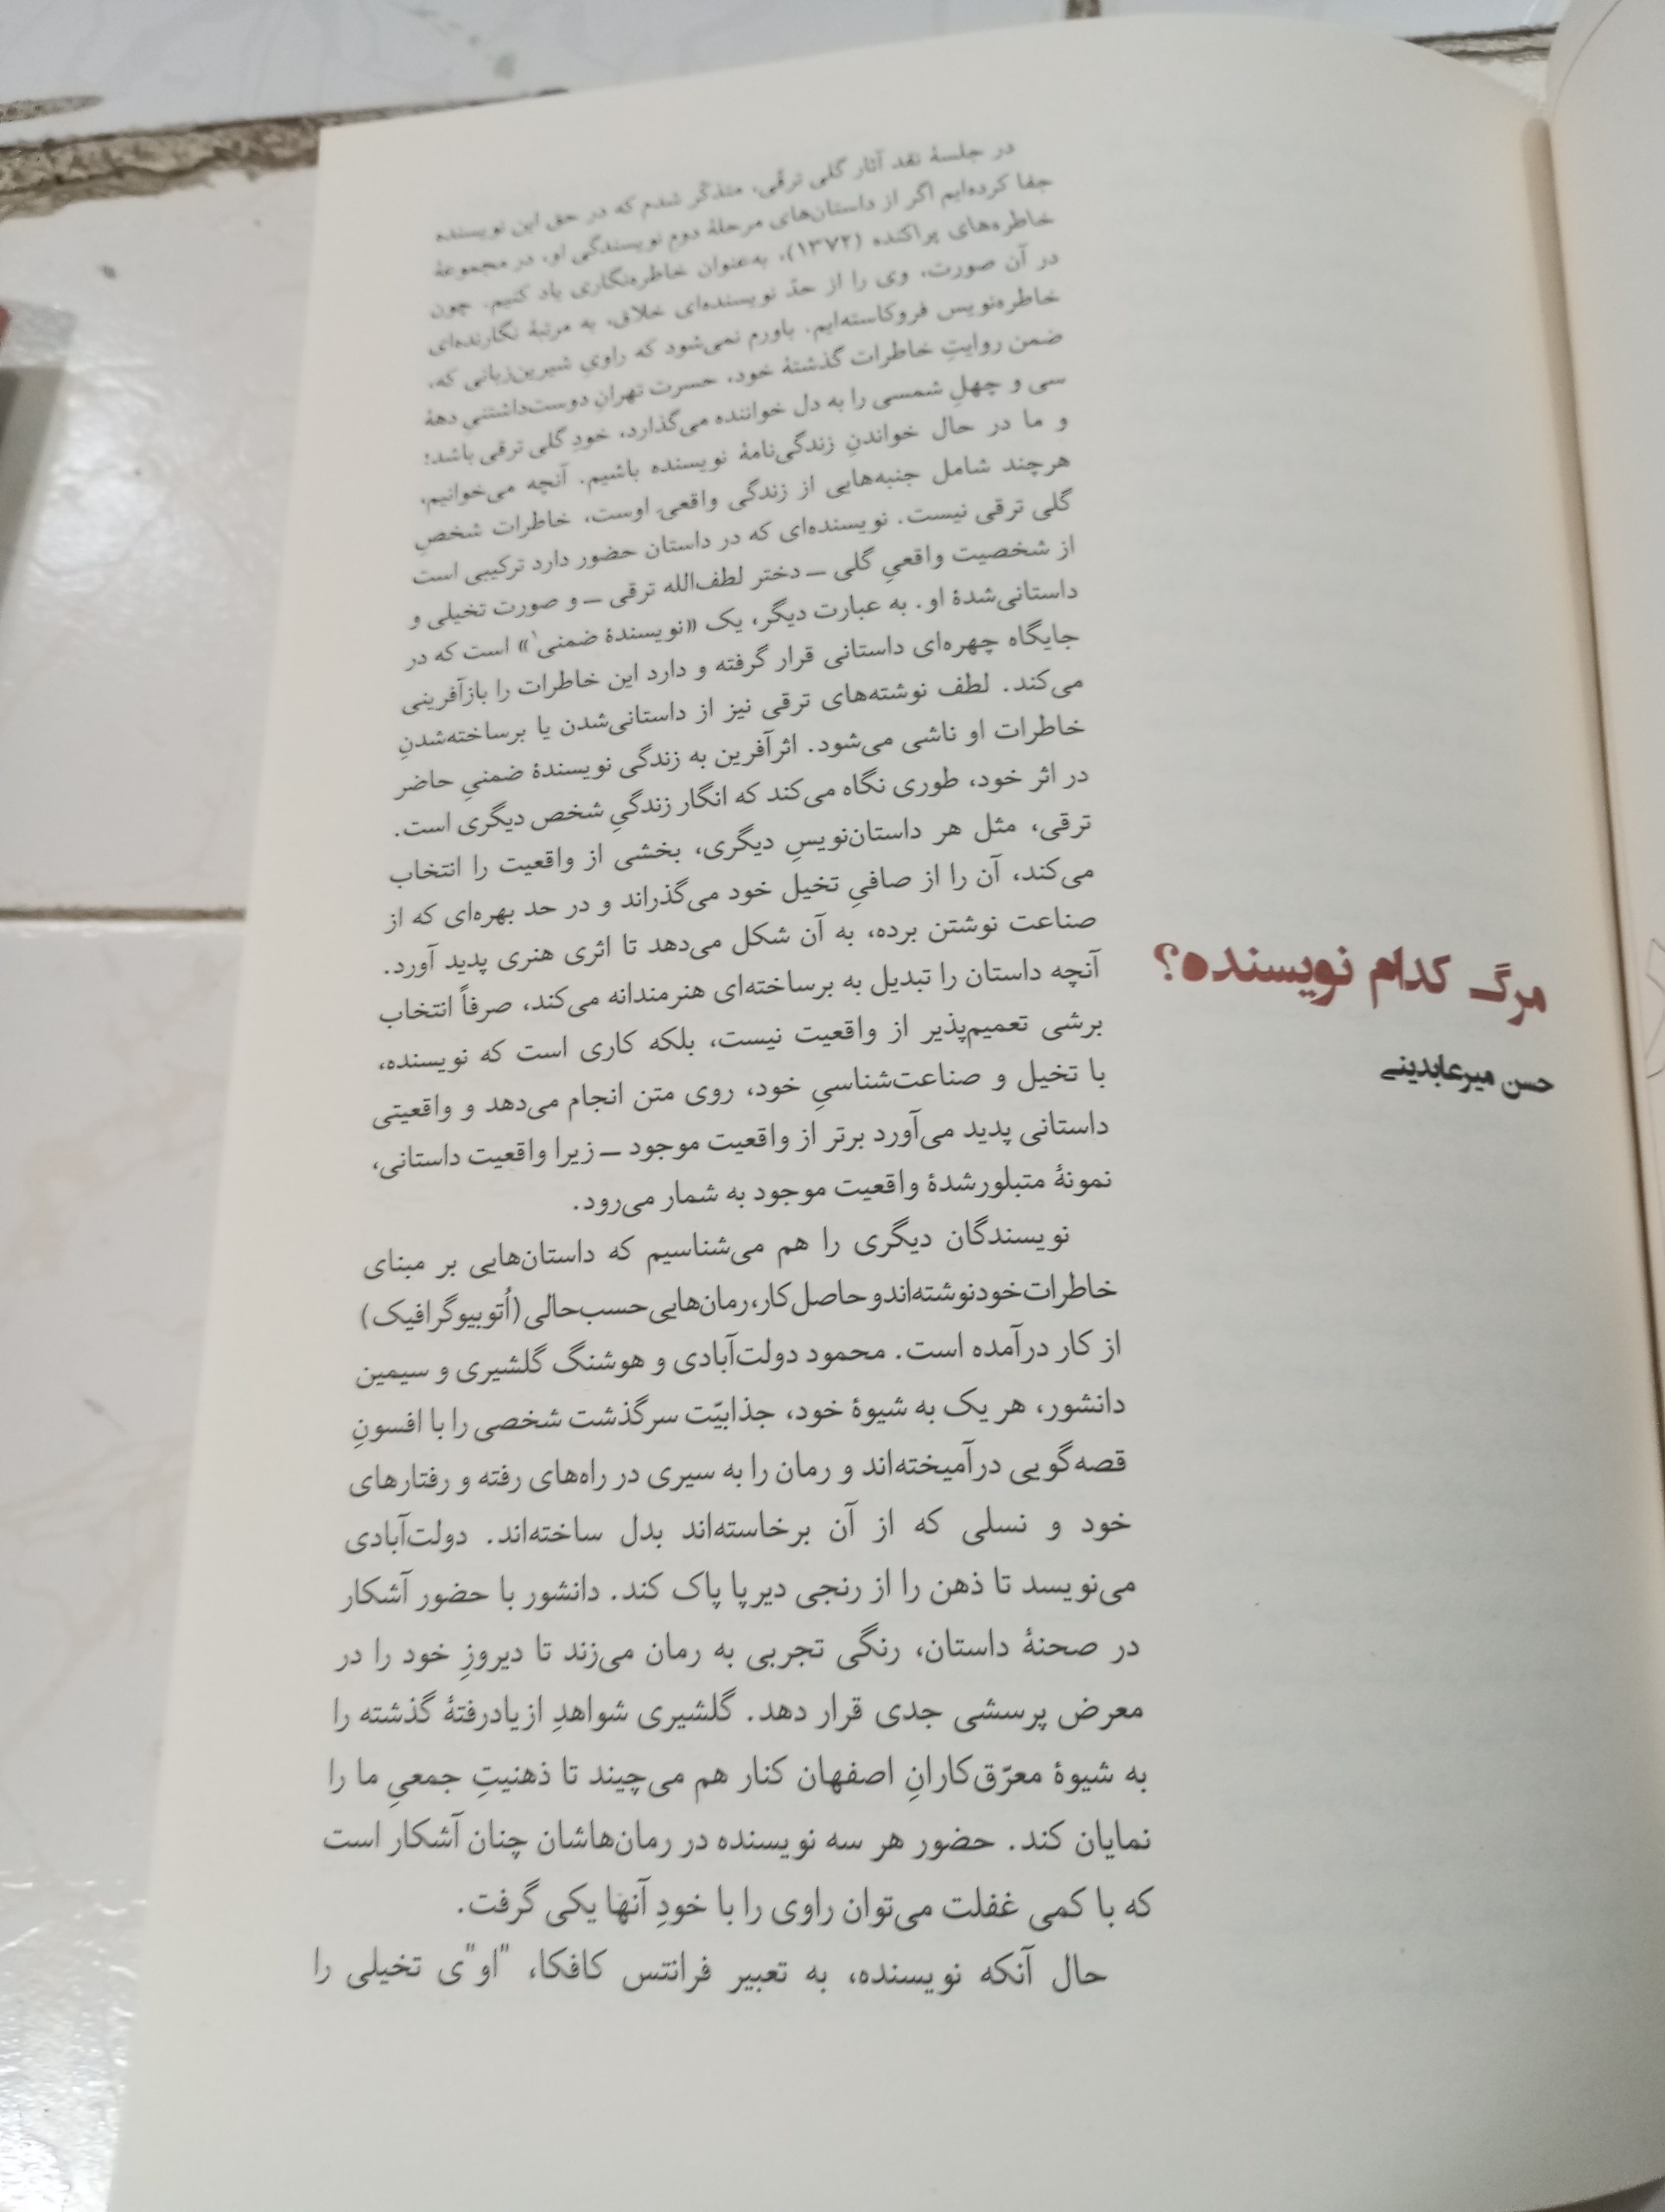 مرگ کدام نویسنده؟
حسن میرعابدینی
در جلسهٔ نقد آثار گلی ترقّی، متذکّر شدم که در حق این نویسنده
جفا کرده‌ایم اگر از داستان‌های مرحلهٔ دوم نویسندگی او، در مجموعهٔ
خاطره‌های پراکنده (۱۳۷۲)، به‌عنوان خاطره‌نگاری یاد کنیم. چون
در آن صورت، وی را از حدّ نویسنده‌ای خلاق، به مرتبهٔ نگارنده‌ای
خاطره‌نویس فروکاسته‌ایم. باورم نمی‌شود که راویِ شیرین‌زبانی که،
ضمن روایتِ خاطرات گذشتهٔ خود، حسرت تهرانِ دوست‌داشتنیِ دههٔ
سی و چهلِ شمسی را به دل خواننده می‌گذارد، خودِ گلی ترقی باشد؛
و ما در حال خواندنِ زندگی‌نامهٔ نویسنده باشیم. آنچه می‌خوانیم،
هرچند شامل جنبه‌هایی از زندگی واقعیِ اوست، خاطرات شخصِ
گلی ترقی نیست. نویسنده‌ای که در داستان حضور دارد ترکیبی است
از شخصیت واقعیِ گلی ــ دختر لطف‌الله ترقی ــ و صورت تخیلی و
داستانی‌شدهٔ او. به عبارت دیگر، یک «نویسندهٔ ضمنی۱» است که در
جایگاه چهره‌ای داستانی قرار گرفته و دارد این خاطرات را بازآفرینی
می‌کند. لطف نوشته‌های ترقی نیز از داستانی‌شدن یا برساخته‌شدنِ
خاطرات او ناشی می‌شود. اثرآفرین به زندگی نویسندهٔ ضمنیِ حاضر
در اثر خود، طوری نگاه می‌کند که انگار زندگیِ شخص دیگری است.
ترقی، مثل هر داستان‌نویسِ دیگری، بخشی از واقعیت را انتخاب
می‌کند، آن را از صافیِ تخیل خود می‌گذراند و در حد بهره‌ای که از
صناعت نوشتن برده، به آن شکل می‌دهد تا اثری هنری پدید آورد.
آنچه داستان را تبدیل به برساخته‌ای هنرمندانه می‌کند، صرفاً انتخاب
برشی تعمیم‌پذیر از واقعیت نیست، بلکه کاری است که نویسنده،
با تخیل و صناعت‌شناسیِ خود، روی متن انجام می‌دهد و واقعیتی
داستانی پدید می‌آورد برتر از واقعیت موجود ــ زیرا واقعیت داستانی،
نمونهٔ متبلورشدهٔ واقعیت موجود به شمار می‌رود.
نویسندگان دیگری را هم می‌شناسیم که داستان‌هایی بر مبنای
خاطرات خود نوشته‌اند و حاصل کار، رمان‌هایی حسب‌حالی (اُتوبیوگرافیک)
از کار درآمده است. محمود دولت‌آبادی و هوشنگ گلشیری و سیمین
دانشور، هر یک به شیوهٔ خود، جذابیّت سرگذشت شخصی را با افسونِ
قصه‌گویی درآمیخته‌اند و رمان را به سیری در راه‌های رفته و رفتارهای
خود و نسلی که از آن برخاسته‌اند بدل ساخته‌اند. دولت‌آبادی
می‌نویسد تا ذهن را از رنجی دیرپا پاک کند. دانشور با حضور آشکار
در صحنهٔ داستان، رنگی تجربی به رمان می‌زند تا دیروزِ خود را در
معرض پرسشی جدی قرار دهد. گلشیری شواهدِ ازیادرفتهٔ گذشته را
به شیوهٔ معرّق‌کارانِ اصفهان کنار هم می‌چیند تا ذهنیتِ جمعیِ ما را
نمایان کند. حضور هر سه نویسنده در رمان‌هاشان چنان آشکار است
که با کمی غفلت می‌توان راوی را با خودِ آنها یکی گرفت.
حال آنکه نویسنده، به تعبیر فرانتس کافکا، "او"ی تخیلی را